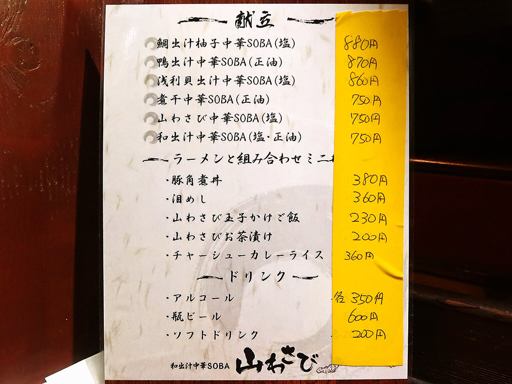 献立
鯛出汁柚子中華SOBA(塩) 880円
鴨出汁中華SOBA(正油) 870円
浅利貝出汁中華SOBA(塩) 860円
煮干中華SOBA(正油) 750円
山わさび中華SOBA(塩) 750円
和出汁中華SOBA(塩・正油) 750円
ラーメンと組み合わせミニ
・豚角煮丼 380円
・泪めし 360円
・山わさび玉子かけご飯 230円
・山わさびお茶漬け 200円
・チャーシューカレーライス 360円
ドリンク
・アルコール 各350円
・瓶ビール 600円
・ソフトドリンク 200円
和出汁中華SOBA 山わさび